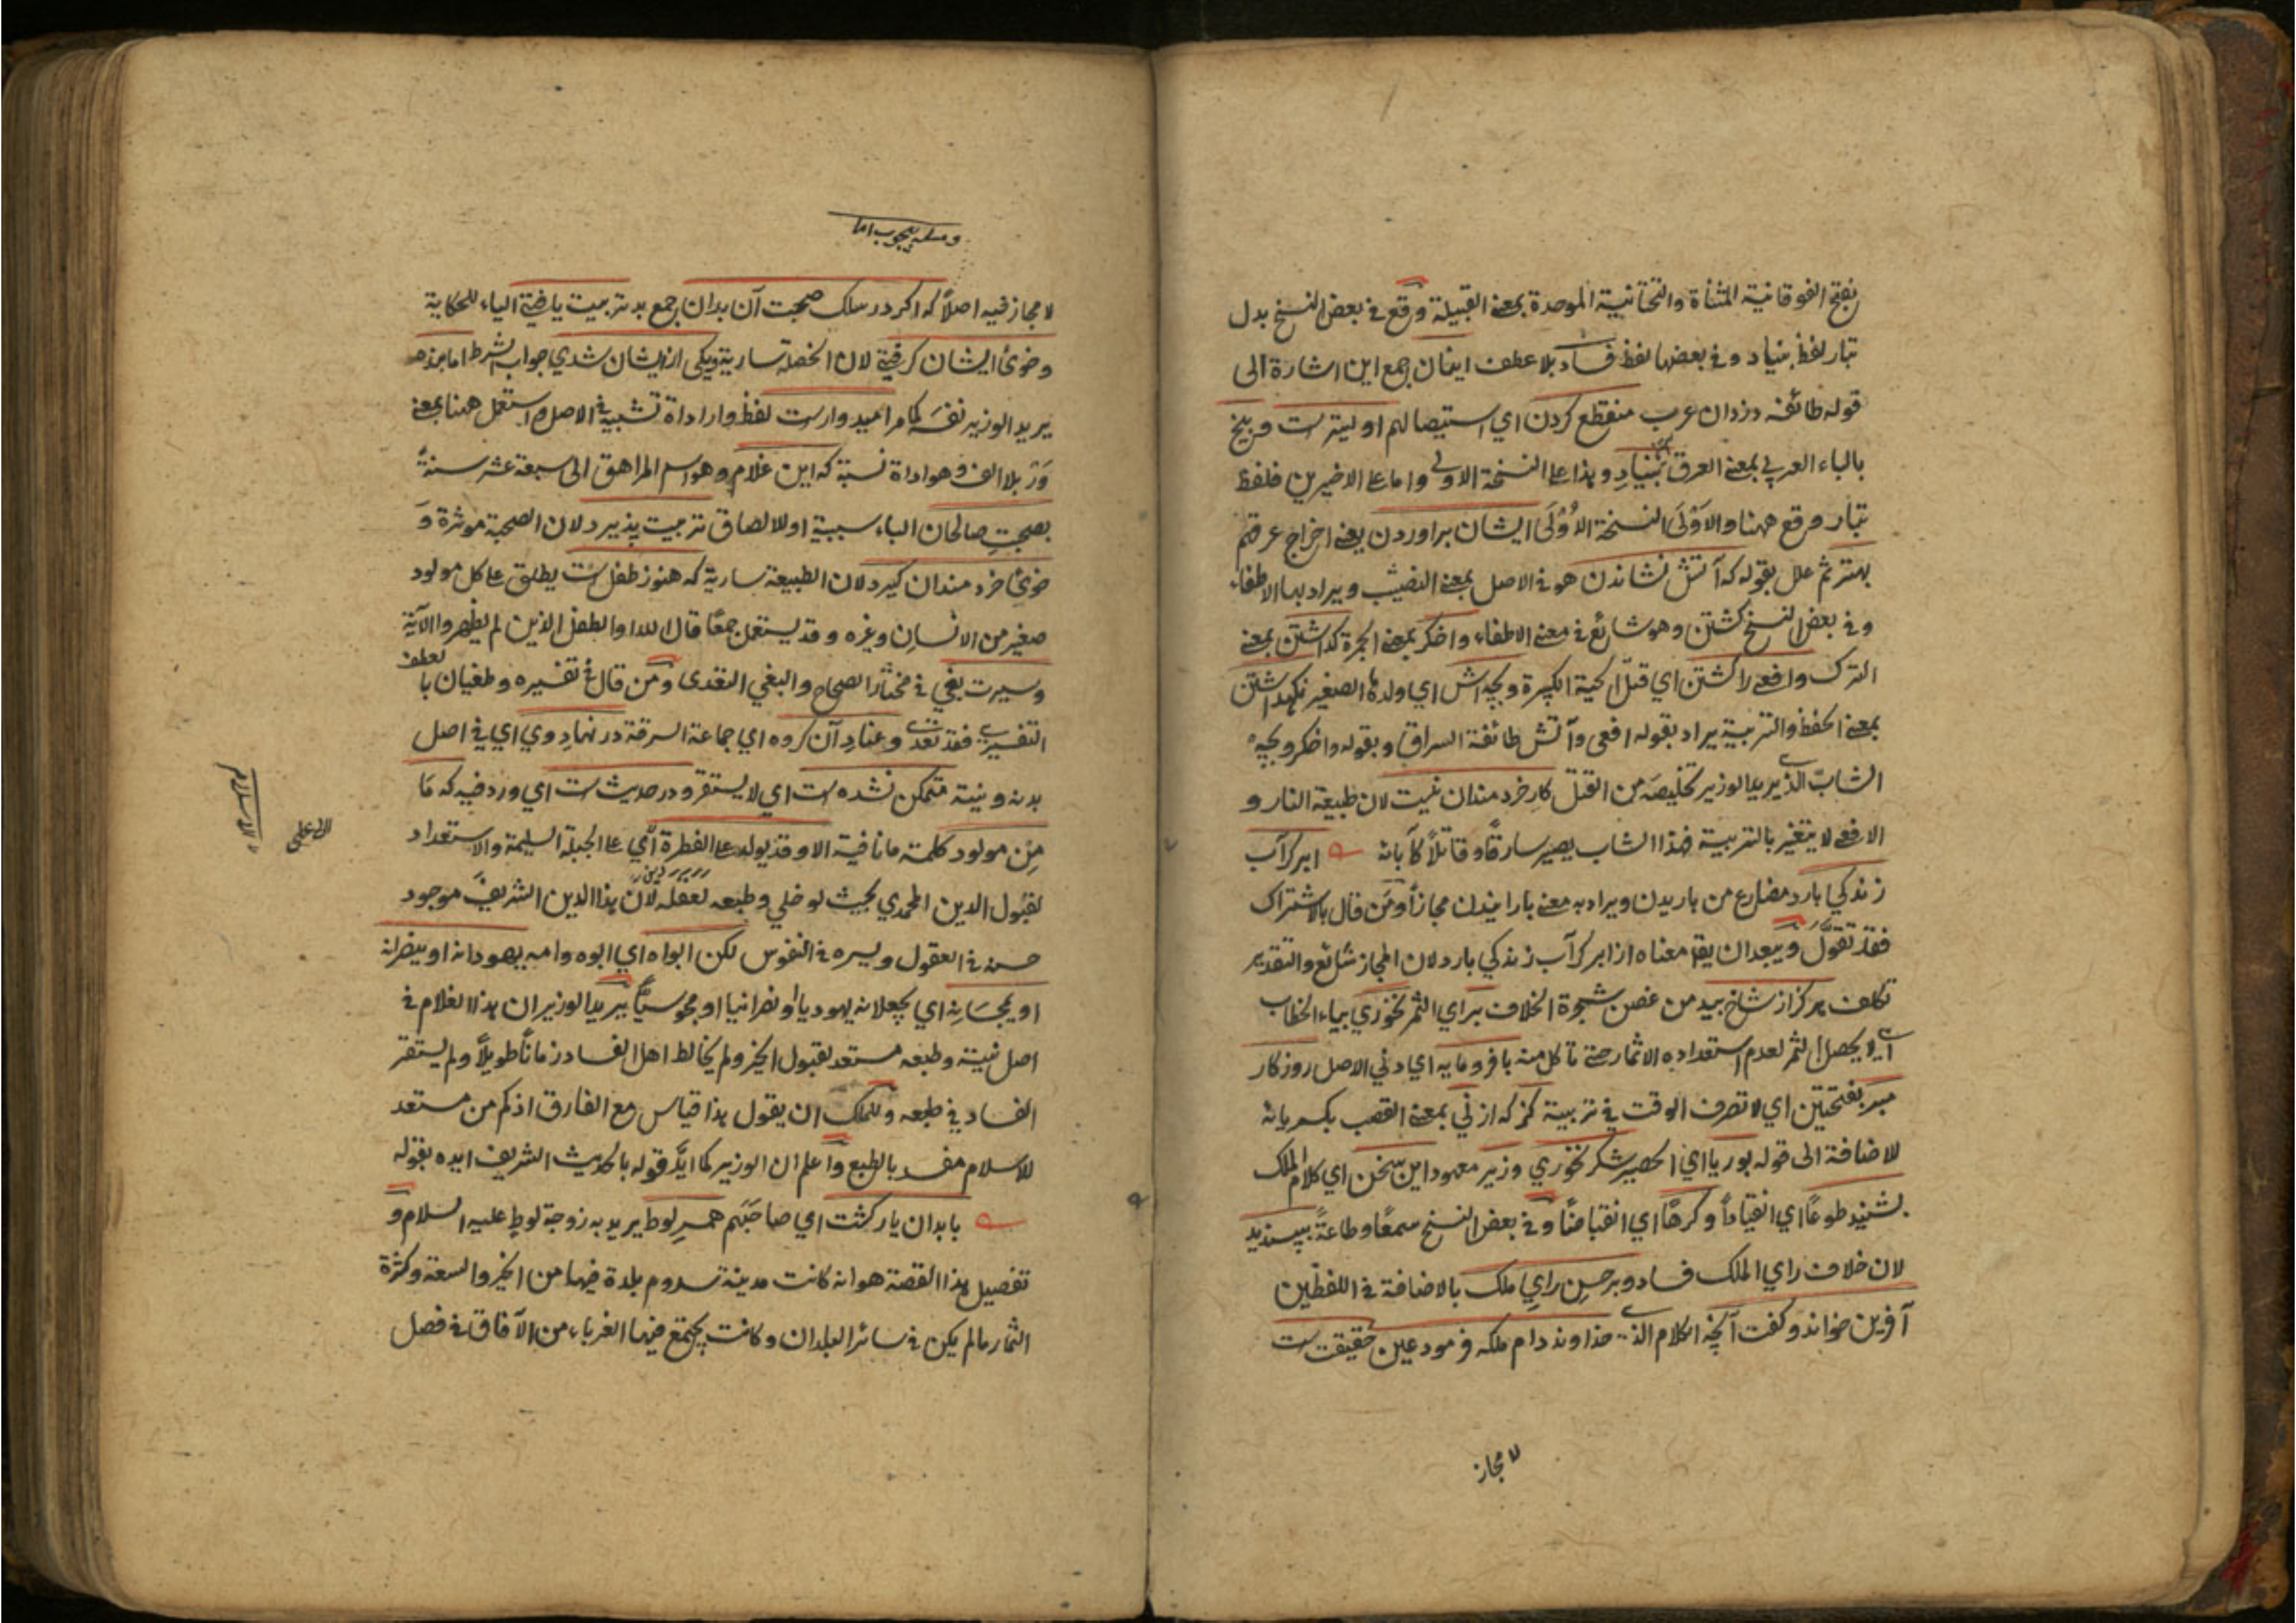 بفتح الفوقانية المثناة والتحتانية الموحدة بمعنى القبيلة وقع في بعض النسخ بدل
تبار لفظ بنياد وفي بعضها لفظ فساد بلا عطف اينان جمع اين اشارة الى
قوله طائفه دزدان عرب منقطع كردن اي استيصالهم اوليترست وبيخ
بالباء العربي بمعنى العرق بنياد وهذا على النسخة الاولى واما على الاخيرين فلفظ
تبار وقع ههنا والاَوْلَى النسخة الاُوْلَى ايشان براوردن يعني اخراج عرقهم
بهتر ثم علل بقوله كه آتش نشاندن هو في الاصل بمعنى النصيب ويراد بها الاطفاء
وفي بعض النسخ كشتن وهو شائع في معنى الاطفاء واخكر بمعنى الجمرة كذاشتن بمعنى
الترك وافعى را كشتن اي قتل الحية الكبيرة وبچه اش اي ولدها الصغير نكهداشتن
بمعنى الحفظ والتربية يراد بقوله افعى وآتش طائفة السراق وبقوله واخكر وبچه
الشاب الذي يريد الوزير تخليصه من القتل كار خردمندان نيست لان طبيعة النار و
الافعى لا يتغير بالتربية فهذا الشاب يصير سارقًا وقاتلًا كآبائه ابر كر آب
زندكي بارد مضارع من باريدن ويراد به معنى بارانيدن مجازًا ومن قال بالاشتراك
فقد تقوّل ويبعد ان يقا معناه از ابر كر آب زندكي بارد لان المجاز شائع والتقدير
تكلف هركز از شاخ بيد من غصن شجرة الخلاف بر اي الثمر نخوري بياء الخطاب
اي لا يحصل الثمر لعدم استعداده الاثمار حتى تاكل منه با فرومايه اي دني الاصل روزكار
مبر بفتحتين اي لا تصرف الوقت في تربية كز كه از ني بمعنى القصب بكسر يائه
للاضافة الى قوله بوريا اي الحصير شكر نخوري وزير معهود اين سخن اي كلام الملك
بشنيد طوعًا اي انقيادًا وكرهًا اي انقباضًا وفي بعض النسخ سمعًا وطاعةً بپسنديد
لان خلاف راي الملك فساد وبر حسن راي ملك بالاضافة في اللفظين
آفرين خواند وكفت آنچه الكلام الذي خداوند دام ملكه فرمود عين حقيقت ست
لا مجاز
لا مجاز فيه اصلًا كه اكر در سلك صحبت آن بدان جمع بد تربيت يافتي الياء للحكاية
وخوئ ايشان كرفتي لان الخصلة سارية ويكي از ايشان شدي جواب الشرط اما بنده
يريد الوزير نفسَه كامراميدوارست لفظ وار اداة تشبيه في الاصل استعمل ههنا بمعنى
وَرْ بلا الف وهو اداة نسبة كه اين غلام وهو اسم المراهق الى سبعة عشر سنةً
بصحبتِ صالحان الباء سببية او للالصاق تربيت پذيرد لان الصحبة موثرة وَ
خوئ خردمندان كيرد لان الطبيعة سارية كه هنوز طفل ست يطلق على كل مولود
صغير من الانسان وغيره وقد يستعمل جمعًا قال الله او الطفل الذين لم يظهروا الآية
وسيرت بغي في مختار الصحاح والبغي التعدى ومن قال في تفسيره وطغيان با لعطف
التفسيري فقد تعدى وعناد آن كروه اي جماعة السرقة در نهاد وي اي في اصل
بدنه ونيته متمكن نشده ست اي لا يستقر ودر حديث ست اي ورد فيه كه مَا
مِن مولود كلمة ما نافية الا وقد يولد على الفطرة اي على الجبلة السليمة والاستعداد
لقبول الدين المحمدي بحيث لو خلي وطبعه لعقله لان هذا الدين الشريف موجود
حسنه في العقول ويسره في النفوس لكن ابواه اي ابوه وامه يهودانه او ينصرانه
او يمجسَانِه اي يجعلانه يهوديا او نصرانيا او مجوسيًّا يريد الوزير ان هذا الغلام في
اصل نيته وطبعه مستعد لقبول الخير ولم يخالط اهل الفساد زمانًا طويلًا ولم يستقر
الفساد في طبعه وللملك ان يقول هذا قياس مع الفارق اذ كم من مستعد
للاسلام مفسد بالطبع واعلم ان الوزير كما ايّد قوله بالحديث الشريف ايده بقوله
با بدان يار كشت اي صاحَبَهم همسرِ لوط يريد به زوجة لوط عليه السلام و
تفصيل هذا القصة هو انه كانت مدينة سدوم بلدة فيها من الخير والسعة وكثرة
الثمار ما لم يكن في سائر البلدان وكانت يجتمع فيها الغرباء من الآفاق في فصل